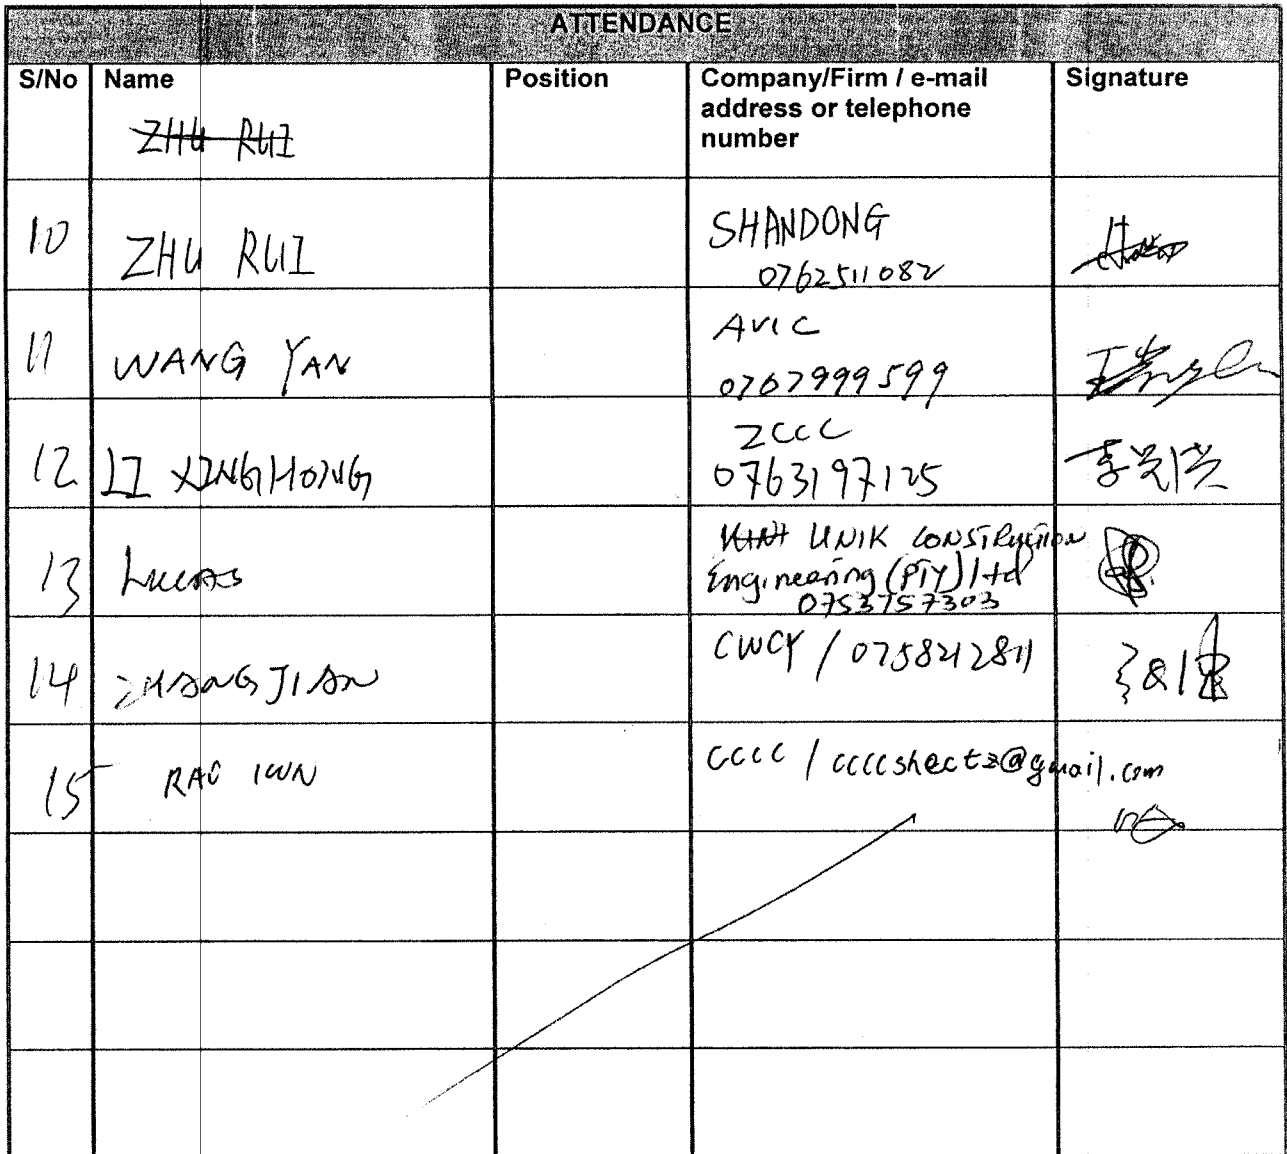 ATTENDANCE
S/No Name Position Company/Firm / e-mail address or telephone number Signature
ZHU RUI
10 ZHU RUI SHANDONG
0762511082
11 WANG YAN AVIC
0767999599
12 LI XINGHONG ZCCC
0763197125 李兴洪
13 LUCAS UNIK CONSTRUCTION
Engineering (PTY) ltd
0753757303
14 ZHANG JIAN CWCY / 0758212811
15 CCCC / ccccshectz@gmail.com